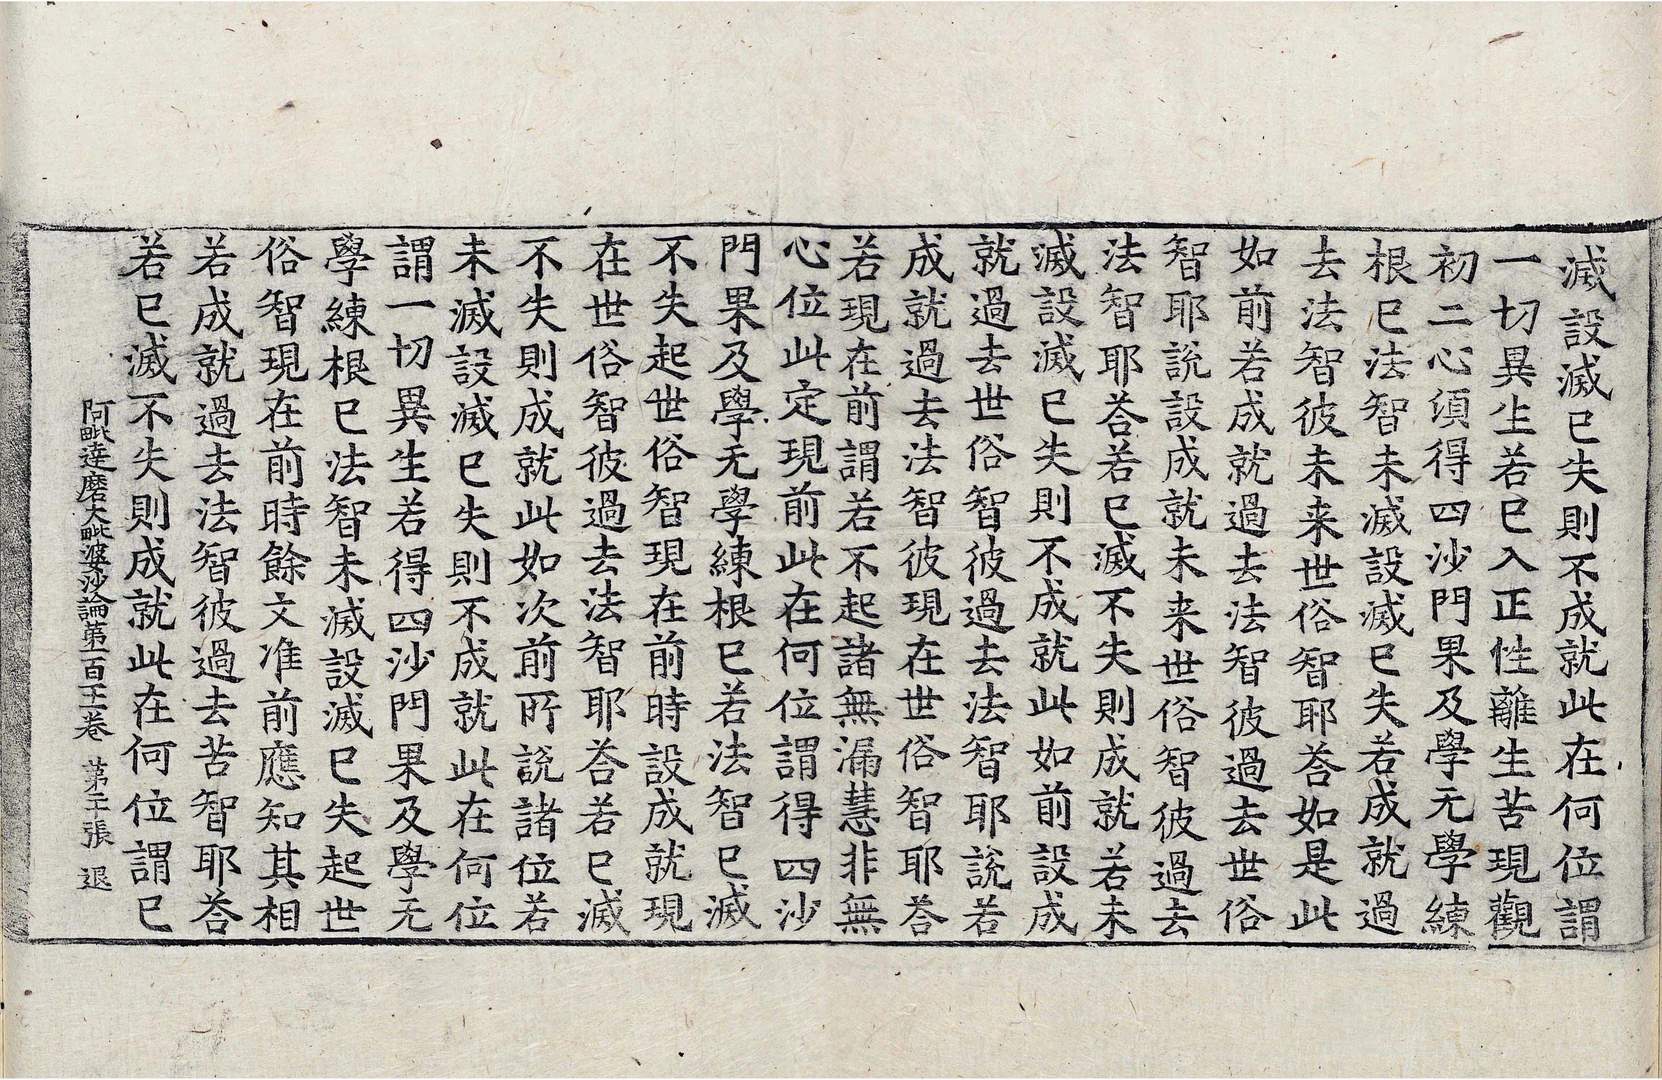 滅設滅已失則不成就此在何位謂
一切異生若已入正性離生苦現觀
初二心須得四沙門果及學无學練
根已法智未滅設滅已失若成就過
去法智彼未来世俗智耶荅如是此
如前若成就過去法智彼過去世俗
智耶說設成就未来世俗智彼過去
法智耶荅若已滅不失則成就若未
滅設滅已失則不成就此如前設成
就過去世俗智彼過去法智耶說若
成就過去法智彼現在世俗智耶荅
若現在前謂若不起諸無漏慧非無
心位此定現前此在何位謂得四沙
門果及學无學練根已若法智已滅
不失起世俗智現在前時設成就現
在世俗智彼過去法智耶荅若已滅
不失則成就此如次前所說諸位若
未滅設滅已失則不成就此在何位
謂一切異生若得四沙門果及學无
學練根已法智未滅設滅已失起世
俗智現在前時餘文准前應知其相
若成就過去法智彼過去苦智耶荅
若已滅不失則成就此在何位謂已
阿毗達磨大毗婆沙論第一百十一卷 第二十張 退